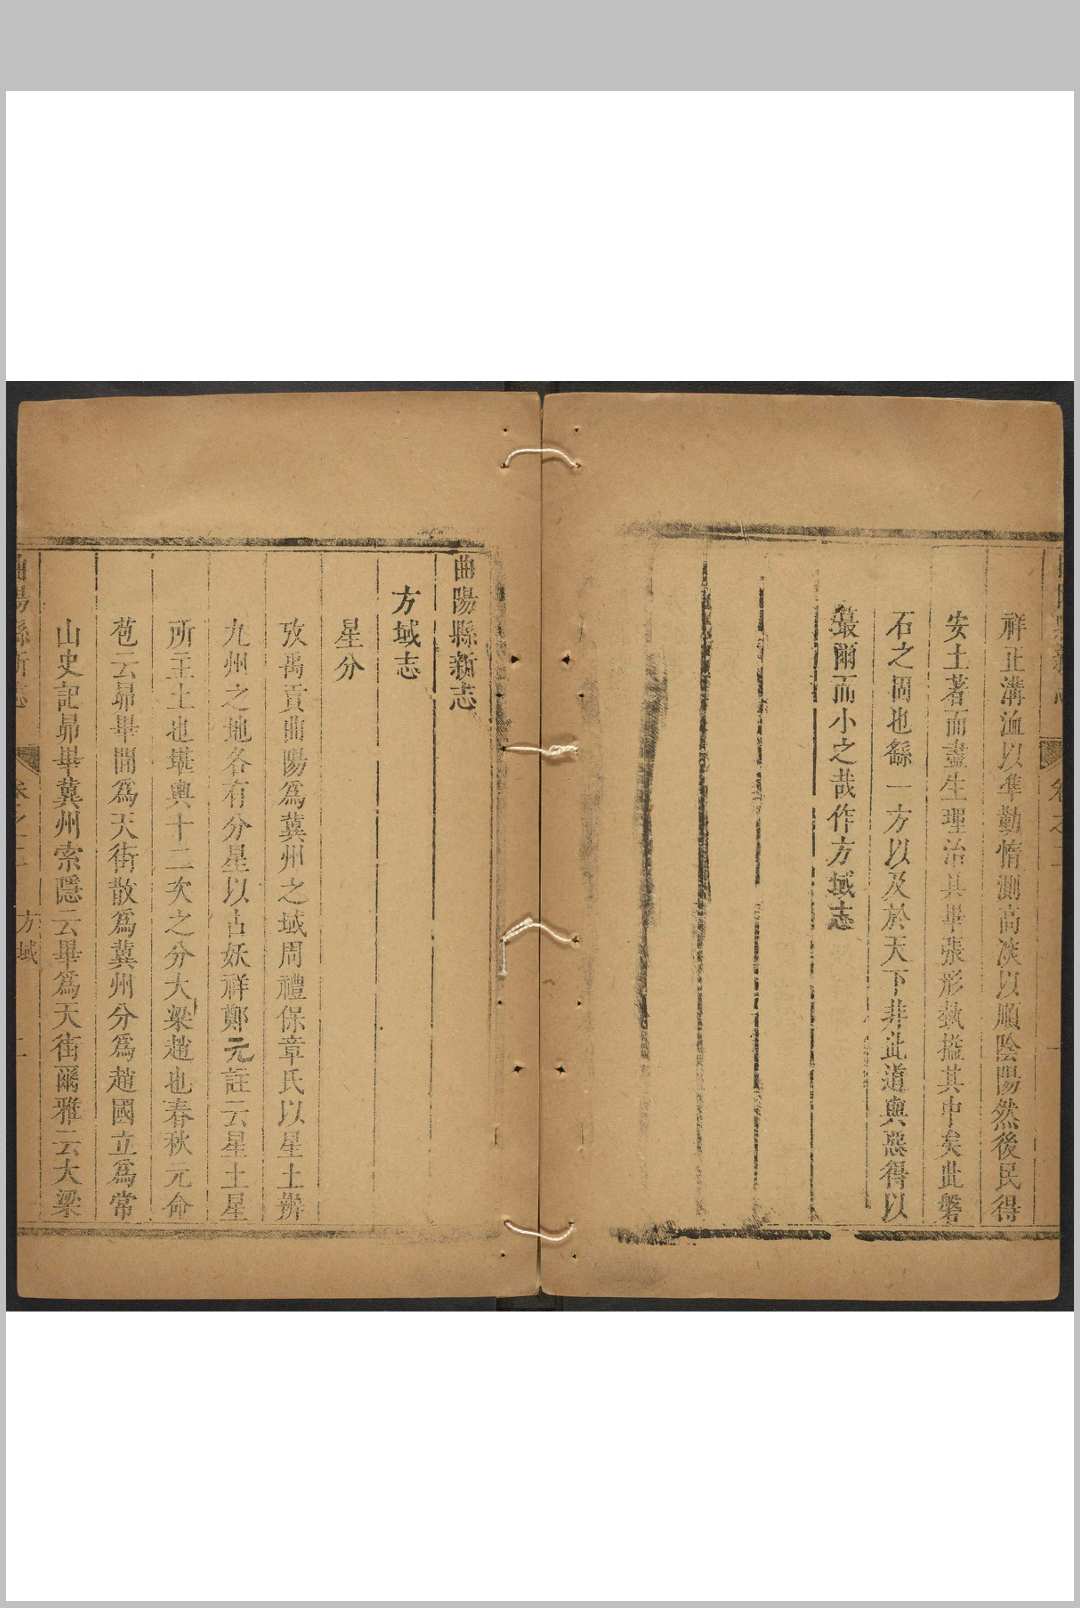 祥正溝洫以準勤惰測高深以順陰陽然後民得
安土著而盡生理治具畢張形埶搤其中矣此磐
石之固也繇一方以及於天下非此道與惡得以
蕞爾而小之哉作方域志
曲陽縣新志
方域志
星分
攷禹貢曲陽爲冀州之域周禮保章氏以星土辨
九州之地各有分星以占妖祥鄭元註云星土星
所主土也堪輿十二次之分大梁趙也春秋元命
苞云昴畢間爲天街散爲冀州分爲趙國立爲常
山史記昴畢冀州索隱云畢爲天街爾雅云大梁
曲陽縣新志 卷之二 方域 二